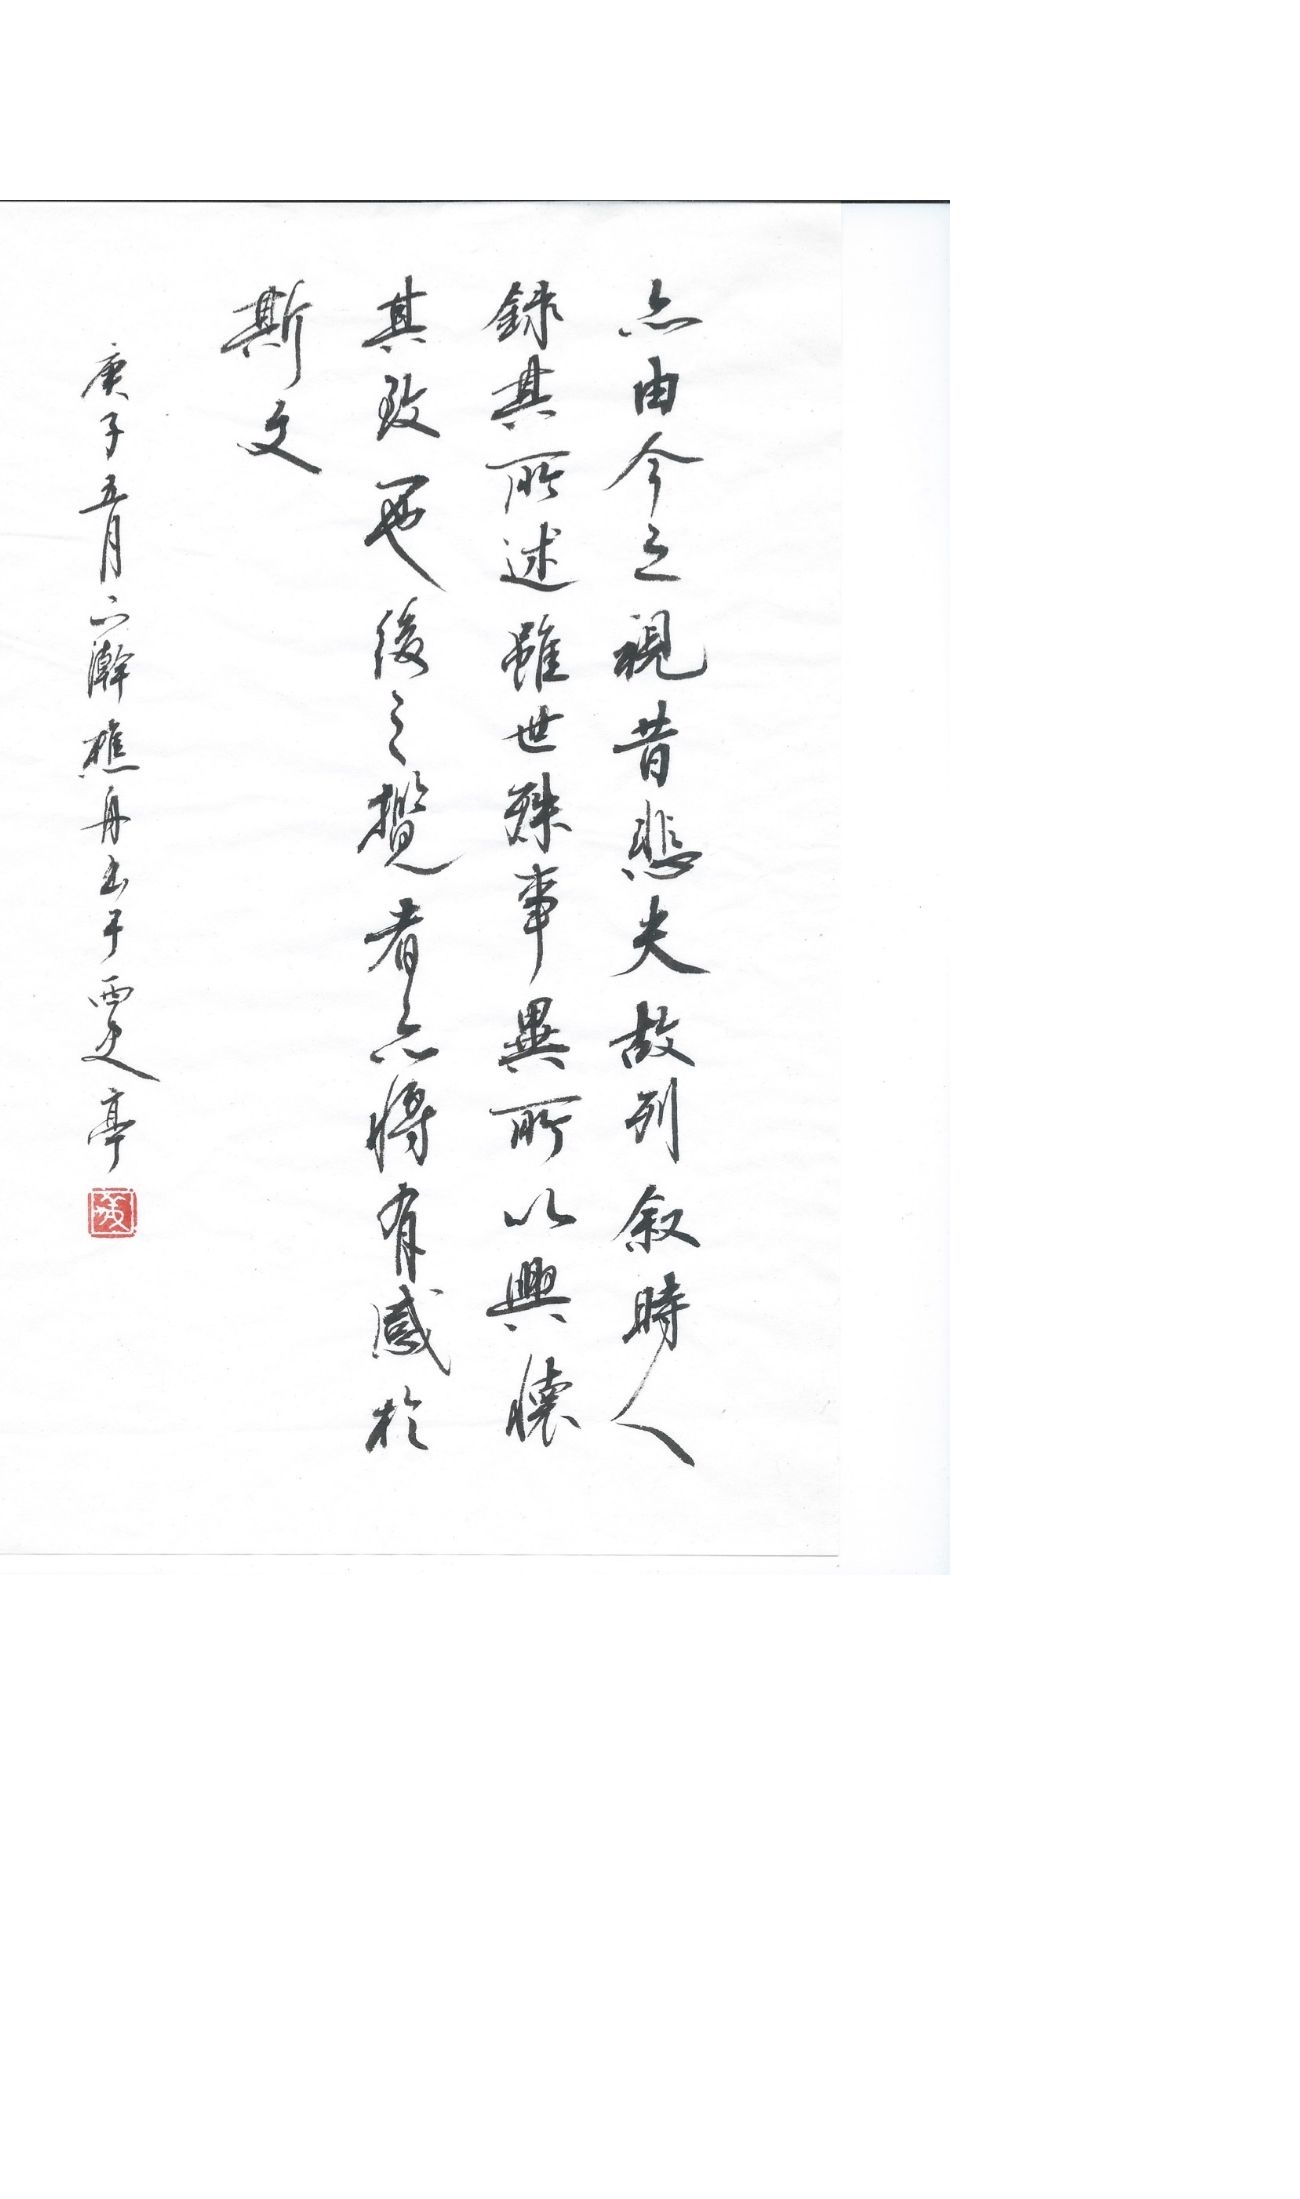 亦由今之視昔悲夫故列叙時人
録其所述雖世殊事異所以興懷
其致一也後之攬者亦將有感於
斯文
庚子五月下澣樵舟書于西叟亭